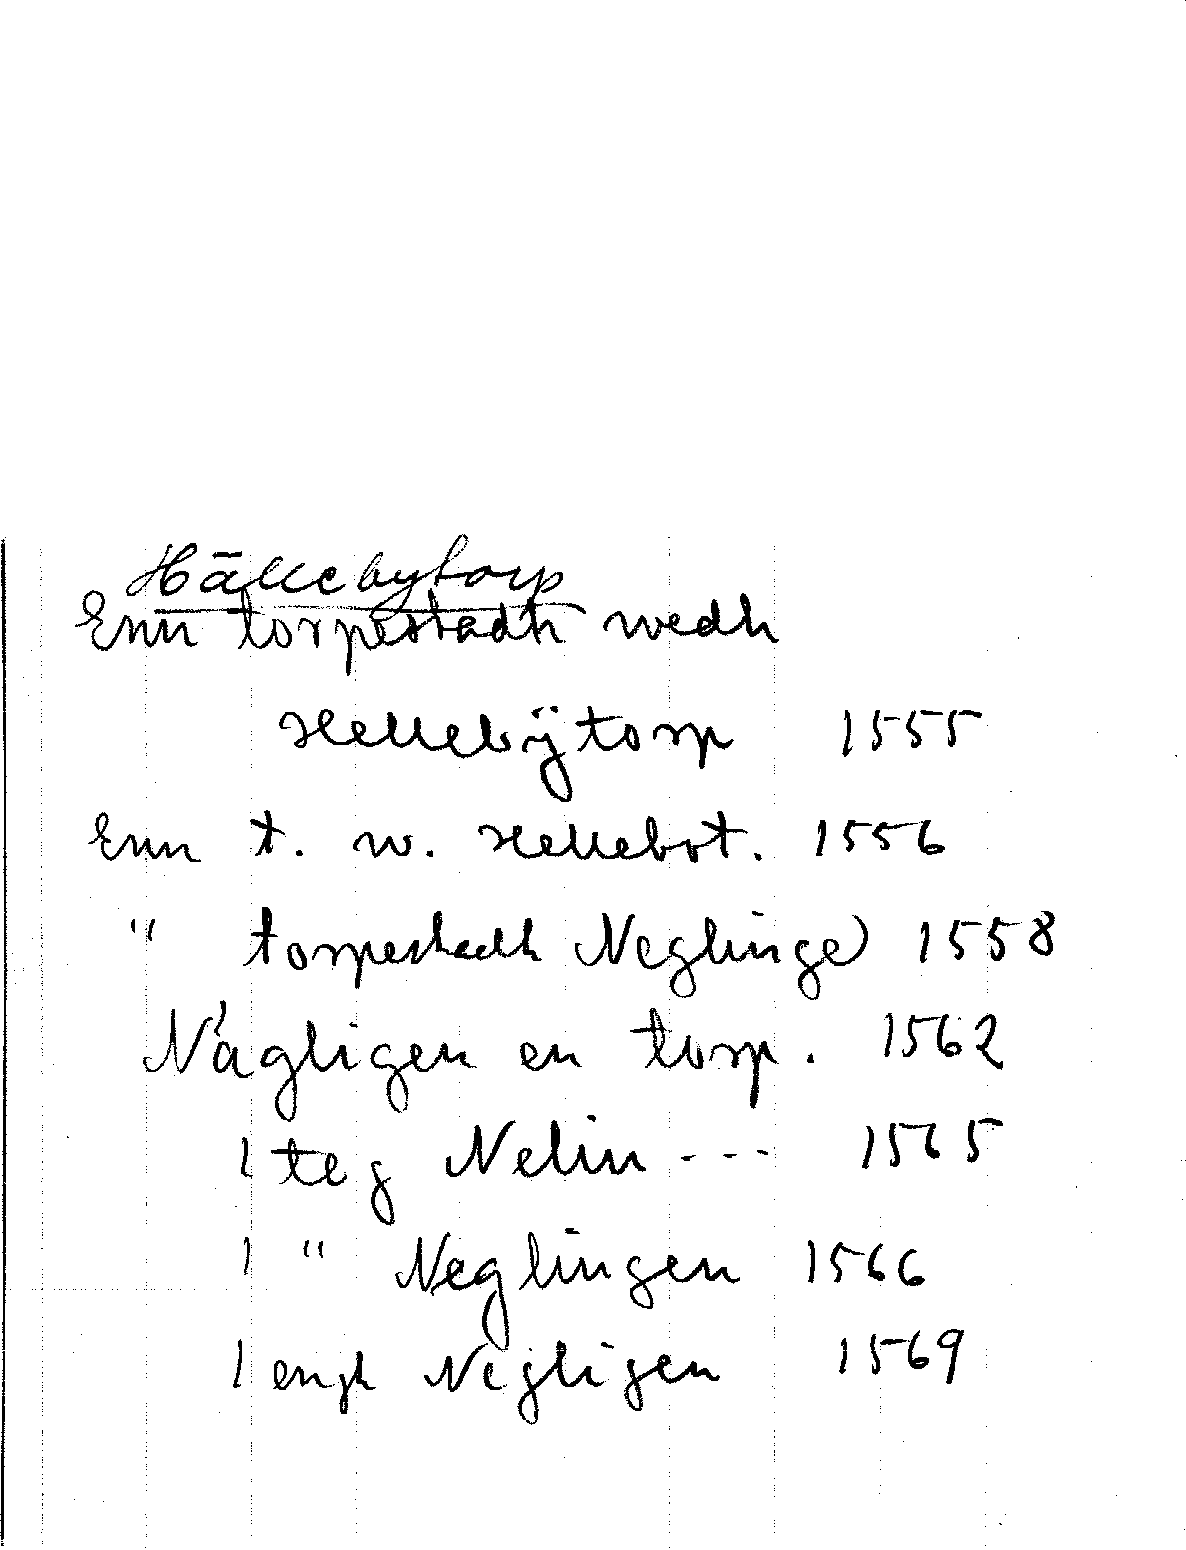 Hällebytorp
Enn torpestadh wedh
Hellebÿtorp 1555
Enn t. w. Hellebot. 1556
" torpestadh Neglinge 1558
Någligen en torp. 1562
1 teg Nelin --- 1565
1 " Neglingen 1566
1 engh Negligen 1569